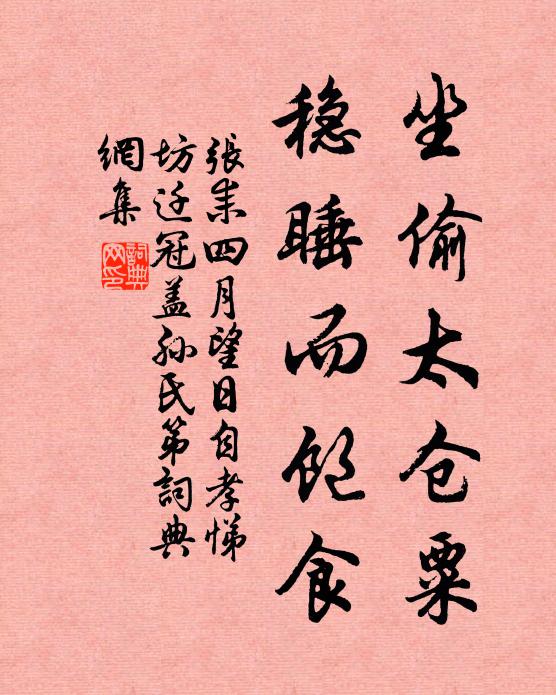 坐偷太仓粟
稳睡而饱食
張耒四月望日自孝悌
坊迁冠盖孙氏第詞典
網集
詞典
网印